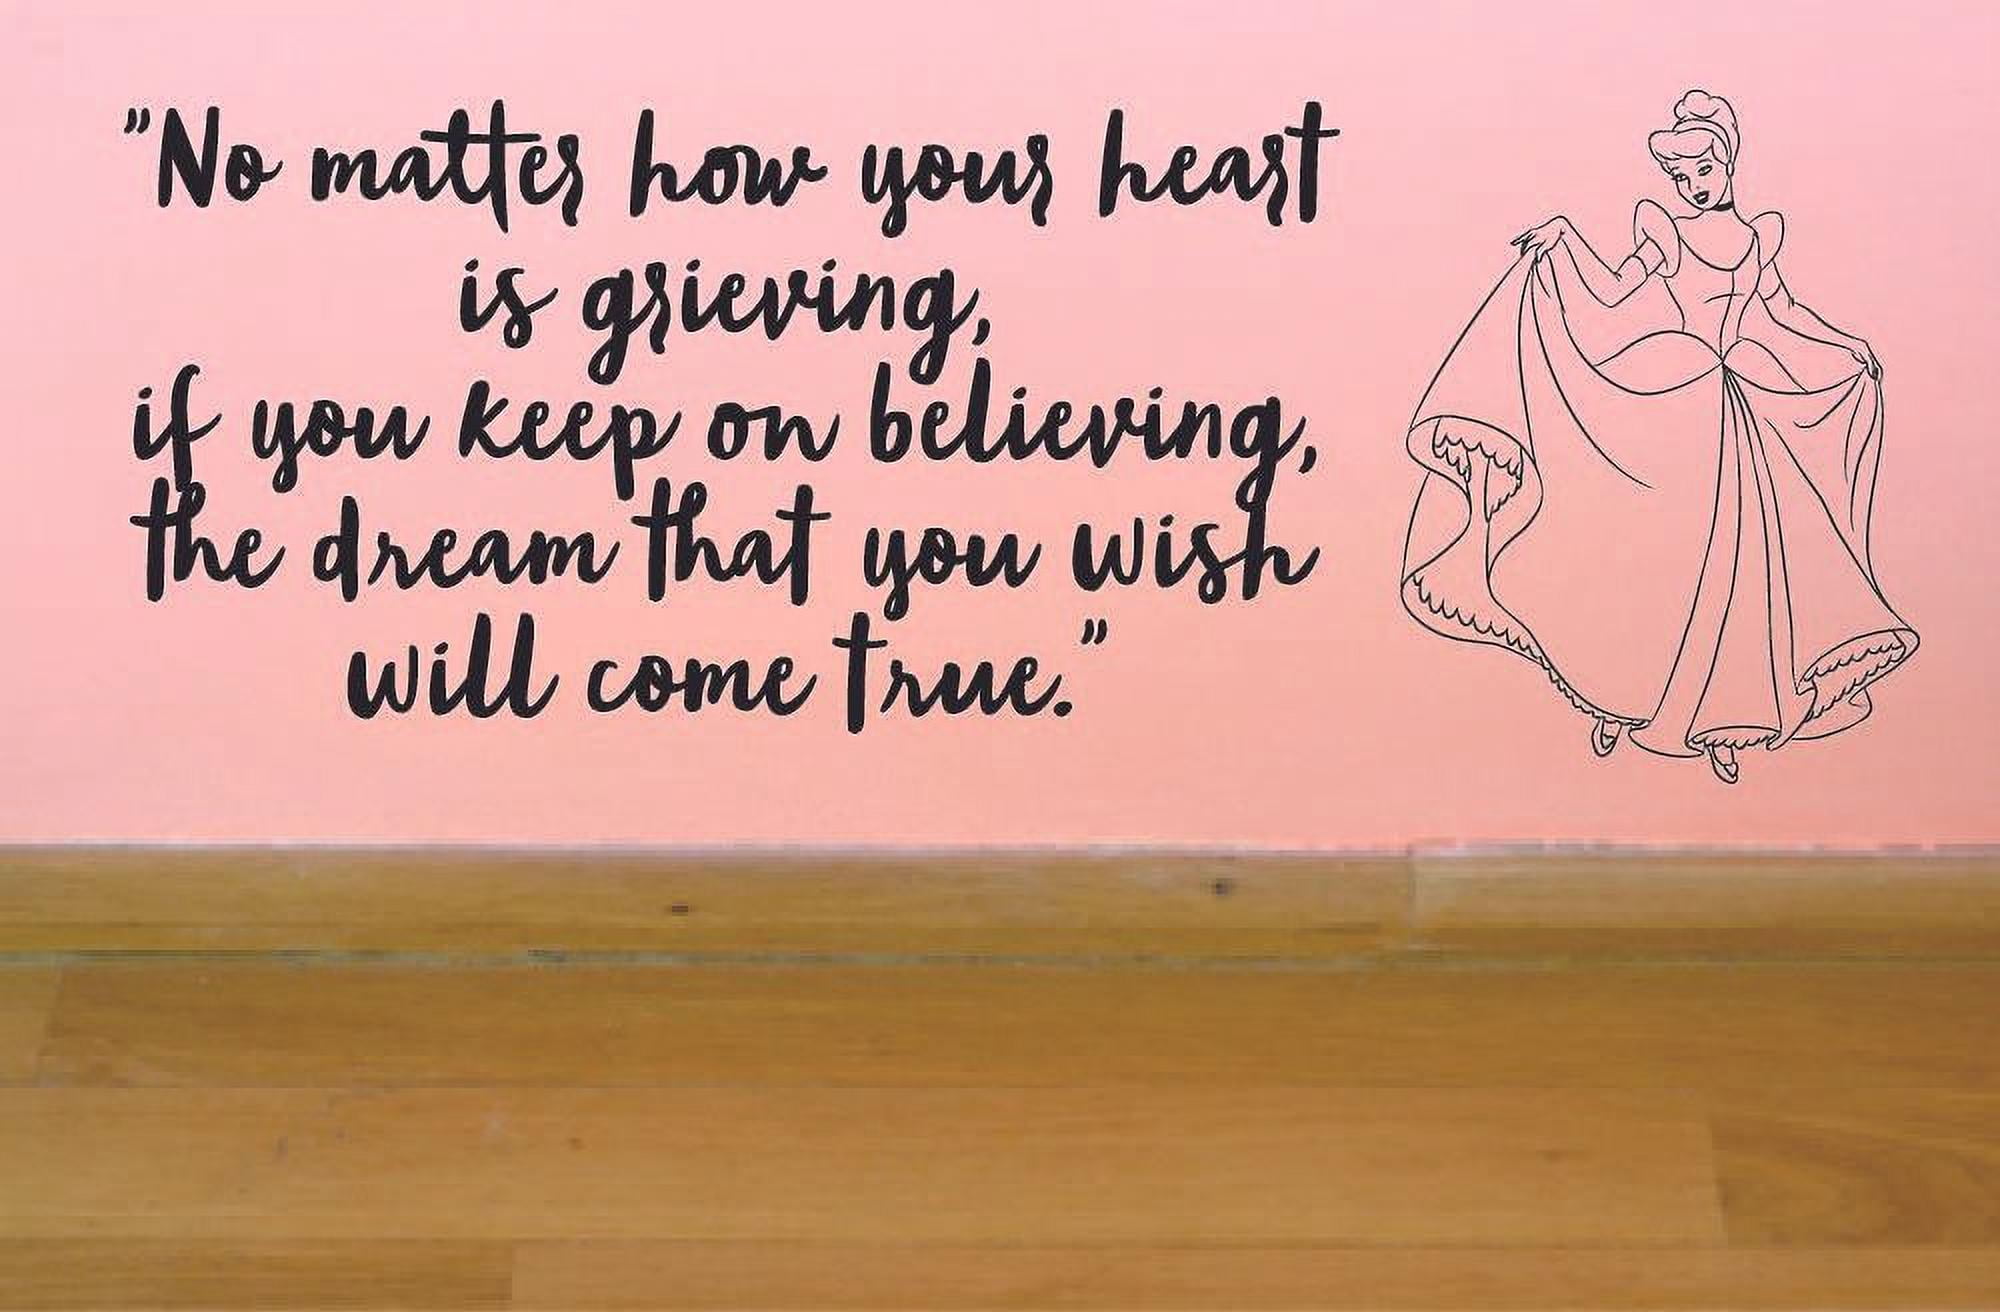 "No matter how your heart
is grieving,
if you keep on believing,
the dream that you wish
will come true."